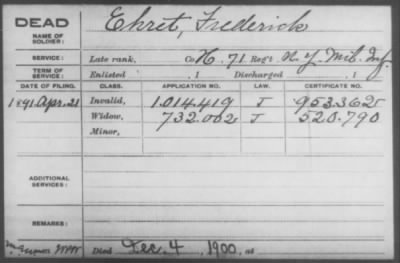 DEAD Ehret, Frederick
NAME OF SOLDIER:
SERVICE: Late rank, Co H. 71 Reg't N.Y. Mil. Inf.
TERM OF SERVICE: Enlisted , 1 Discharged , 1
DATE OF FILING. CLASS. APPLICATION NO. LAW. CERTIFICATE NO.
1891 Apr. 21 Invalid, 1.014.419 J 953.362
Widow, 732.002 J 520.790
Minor,
ADDITIONAL SERVICES:
REMARKS:
Died Dec. 4, 1900, at